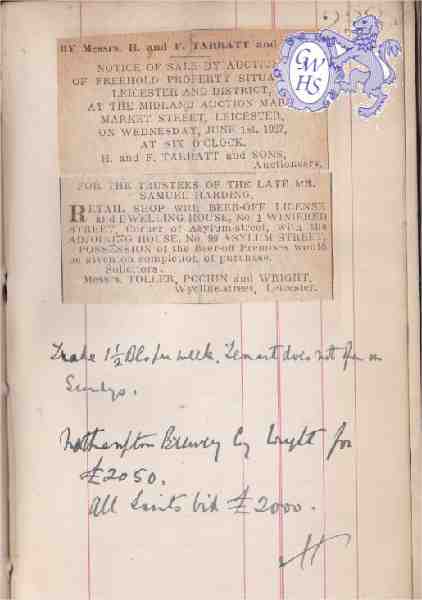 BY Messrs. H. and F. TARRATT and
NOTICE OF SALE BY AUCTION
OF FREEHOLD PROPERTY SITUATE
LEICESTER AND DISTRICT,
AT THE MIDLAND AUCTION MART
MARKET STREET, LEICESTER,
ON WEDNESDAY, JUNE 1st, 1927,
AT SIX O'CLOCK.
H. and F. TARRATT and SONS,
Auctioneers.
FOR THE TRUSTEES OF THE LATE MR.
SAMUEL HARDING.
RETAIL SHOP WITH BEER-OFF LICENSE
AND DWELLING HOUSE, No. 1 WINIFRED
STREET, Corner of Asylum-street, with the
ADJOINING HOUSE, No. 99 ASYLUM STREET,
POSSESSION of the Beer-off Premises would
be given on completion of purchase.
Solicitors:
Messrs. TOLLER, POCHIN and WRIGHT,
Wycliffe-street, Leicester.
GWHS
Trade 1½ Bls per week. Tenant does not open on
Sundys.
Northampton Brewery Cy bought for
£2050.
All Saints bid £2000.